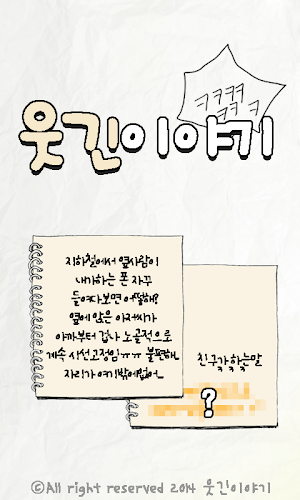 ㅋㅋㅋㅋ
ㅋㅋ ㅋ
웃긴이야기
지하철에서 옆사람이
내가하는 폰 자꾸
들여다보면 어떡해?
옆에 앉은 아저씨가
아까부터 겁나 노골적으로
계속 시선고정임ㅠㅠ 불편해..
자리가 여기밖에없어..
친구가 하는말
?
©All right reserved 2014 웃긴이야기